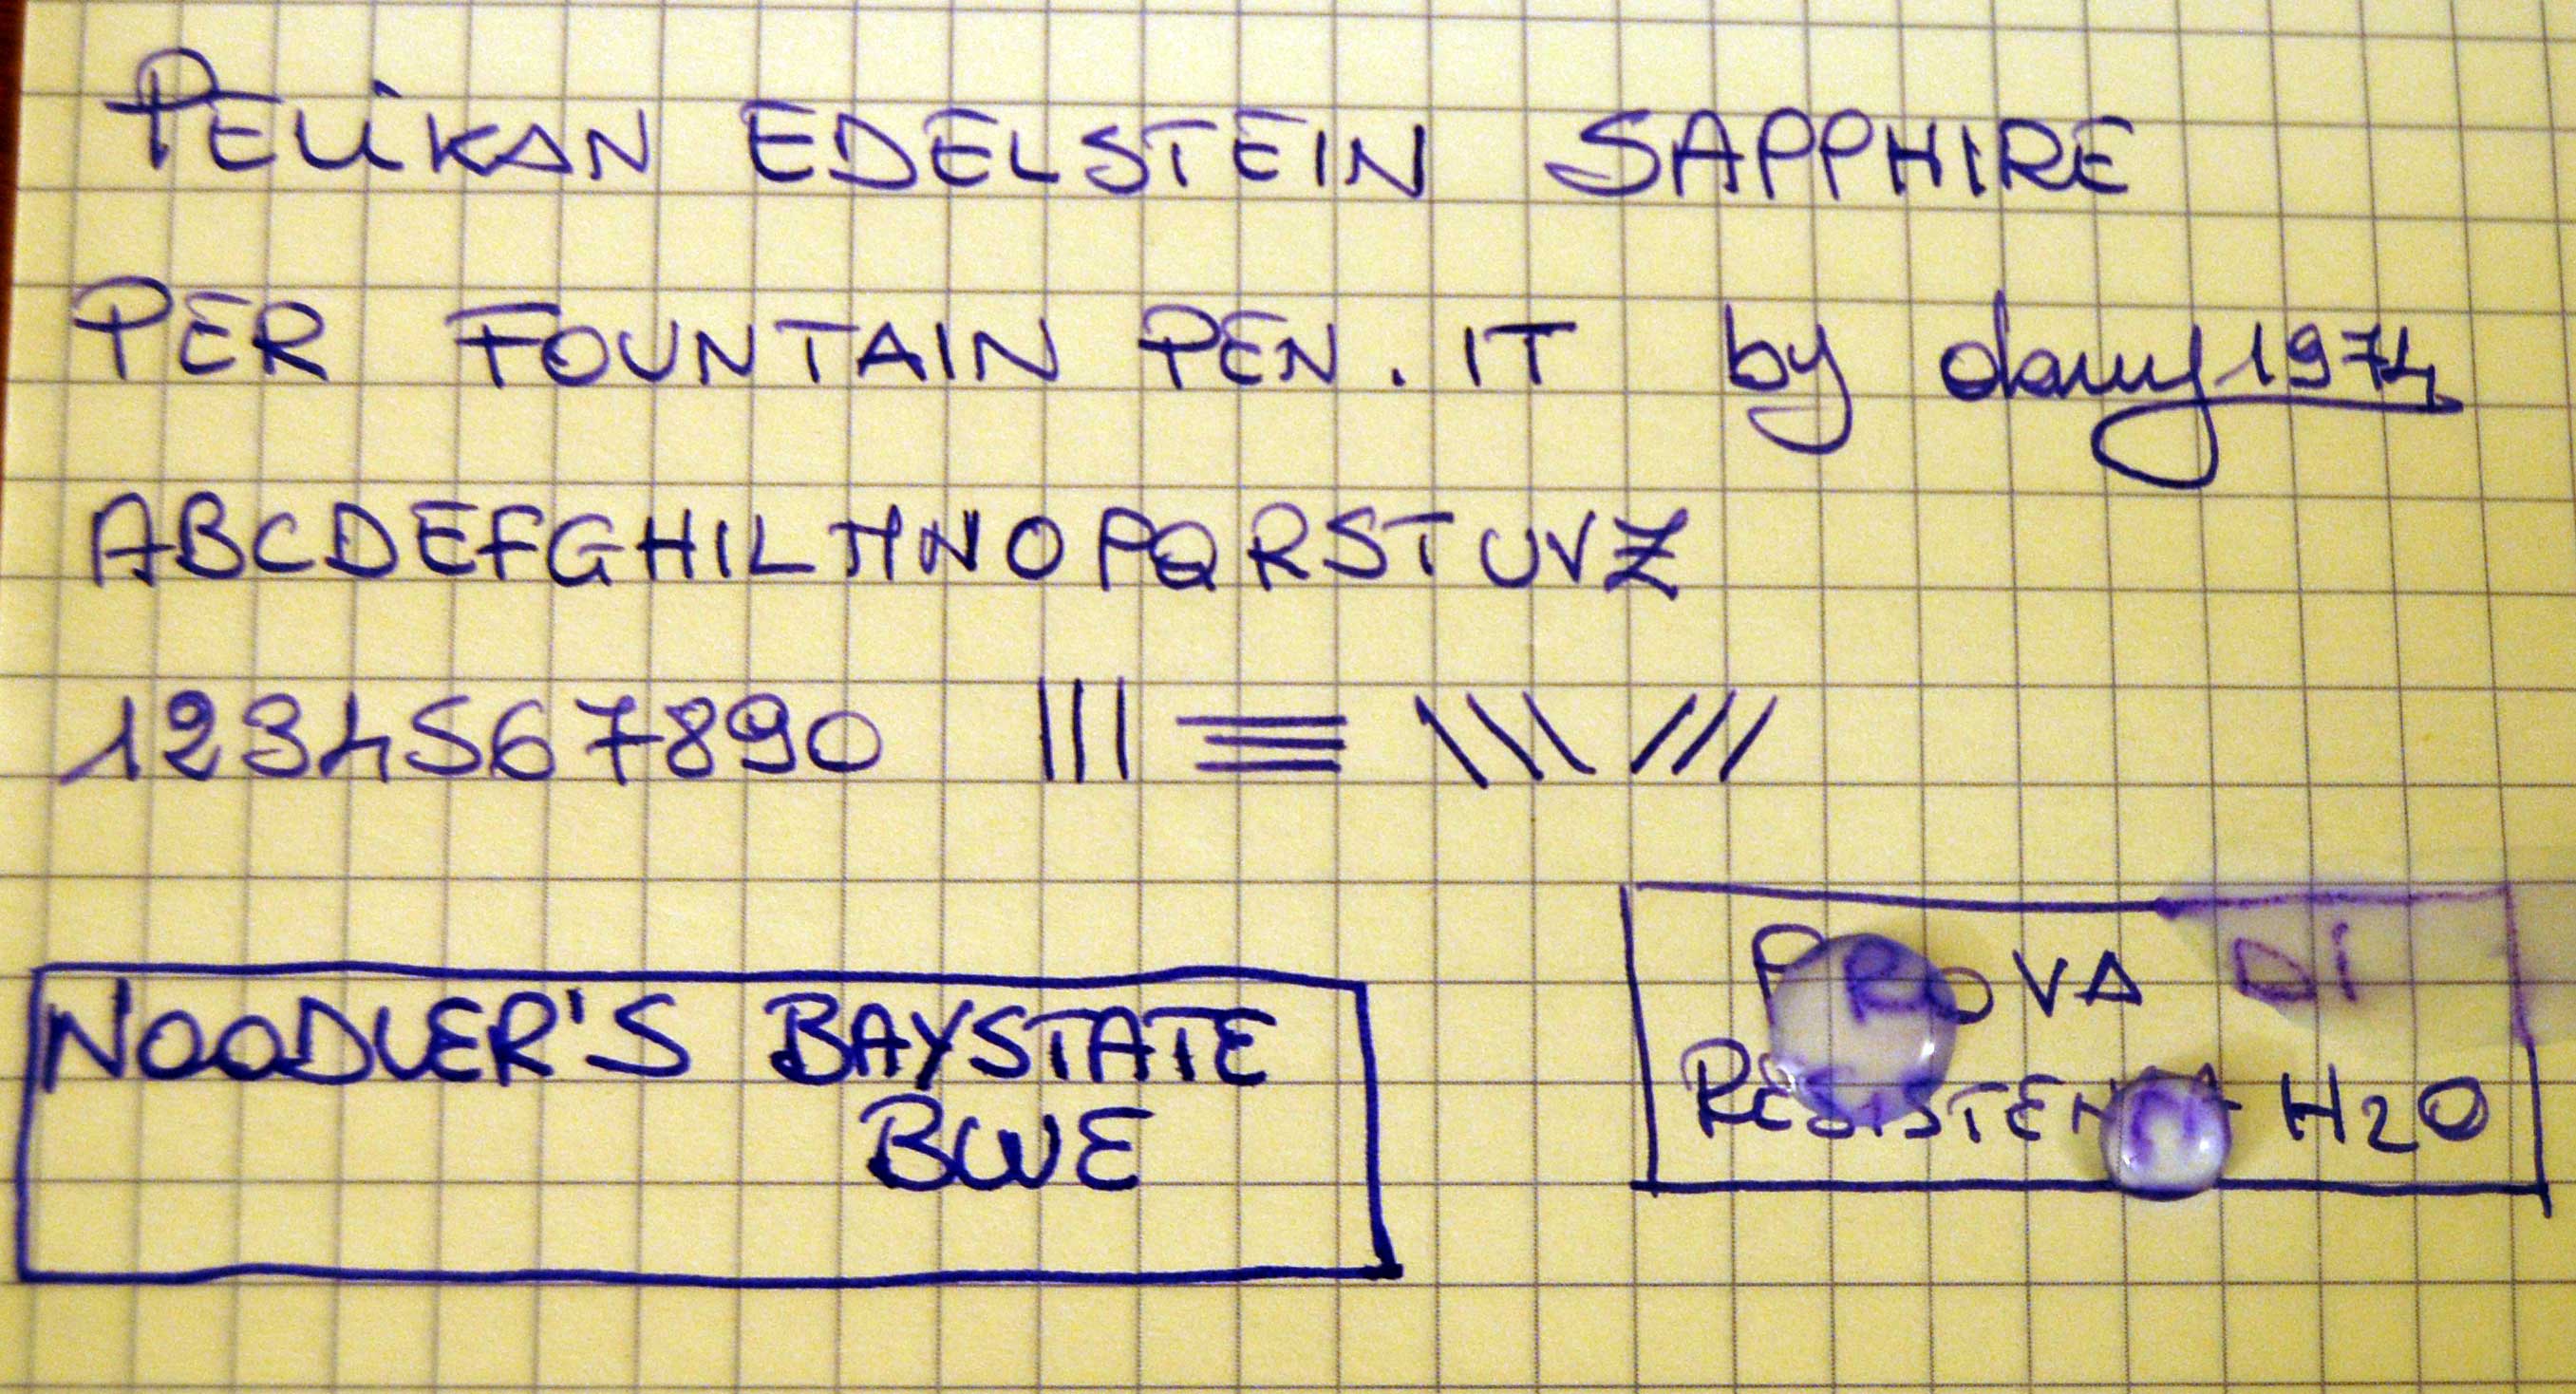 PELiKAN EDELSTEIN SAPPHIRE
PER FOUNTAIN PEN.IT by dany1974
ABCDEFGHILMNOPQRSTUVZ
1234567890
NOODLER'S BAYSTATE
BLUE
PROVA DI
RESISTENZA H2O